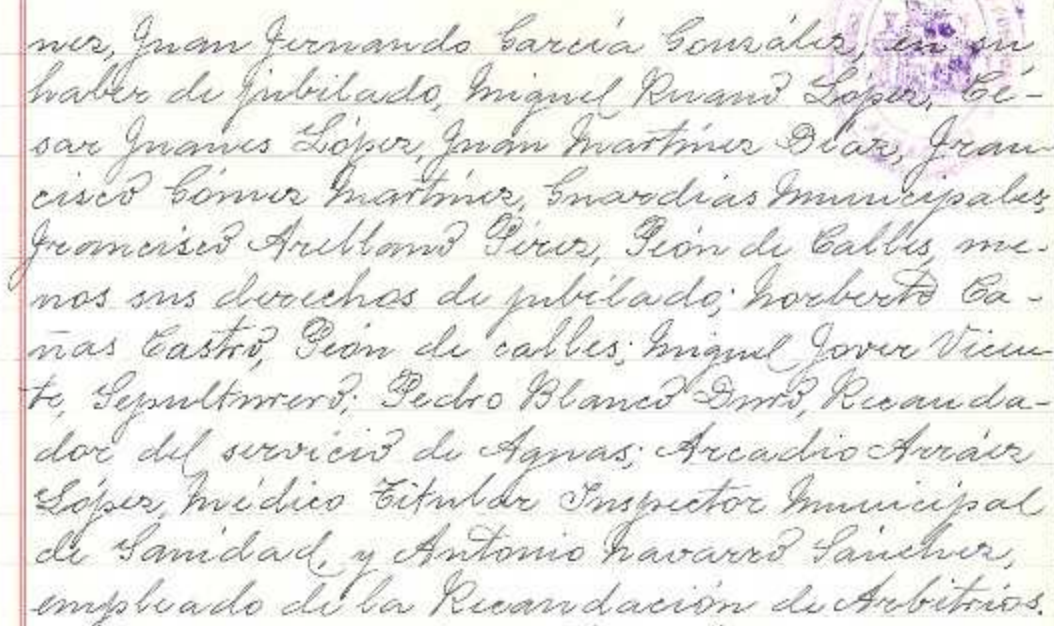 nez, Juan Fernando García González, en su
haber de jubilado, Miguel Ruano López, Cé-
sar Juanes López, Juan Martínez Díaz, Fran-
cisco Gómez Martínez, Guardias Municipales,
Francisco Arellano Pérez, Peón de Calles, me-
nos sus derechos de jubilado; Norberto Ca-
ñas Castro, Peón de calles; Miguel Jover Vicen-
te, Sepulturero; Pedro Blanco Duro, Recauda-
dor del servicio de Aguas; Arcadio Arráez
López, Médico Titular Inspector Municipal
de Sanidad, y Antonio Navarro Sánchez,
empleado de la Recaudación de Arbitrios.